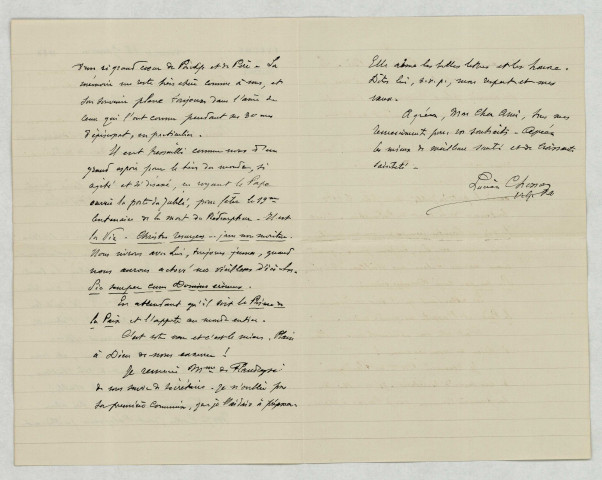 d'un si grand cœur de Pontife et de Père. Sa
mémoire me reste très chère comme à vous, et
son souvenir plane toujours dans l'âme de
ceux qui l'ont connu pendant ses 30 ans
d'épiscopat, en particulier.
Il eut tressailli comme nous d'un
grand espoir pour le bien du monde, si
agité et si divisé, en voyant le Pape
ouvrir la porte du Jubilé, pour fêter le 19me
centenaire de la mort du Rédempteur. Il est
la Vie. Christus resurgens jam non moritur.
Nous vivrons avec Lui, toujours jeunes, quand
nous aurons achevé nos vieillesses d'ici-bas.
Sic semper cum Domino erimus.
En attendant qu'il soit le Prince de
la Paix et l'apporte au monde entier.
C'est votre vœu et c'est le mien. Plaise
à Dieu de nous exaucer !
Je remercie Mme de Flandreysy
de vous servir de secrétaire. Je n'oublie pas
sa première Communion, que je l'aidais à préparer.
Elle aime les belles lettres et les honore.
Dites lui, s.v.p., mon respect et mes
vœux.
Agréez, Mon Cher Ami, tous mes
remerciements pour vos souhaits. Agréez
les miens de meilleure santé et de croissante
sainteté.
Lucien